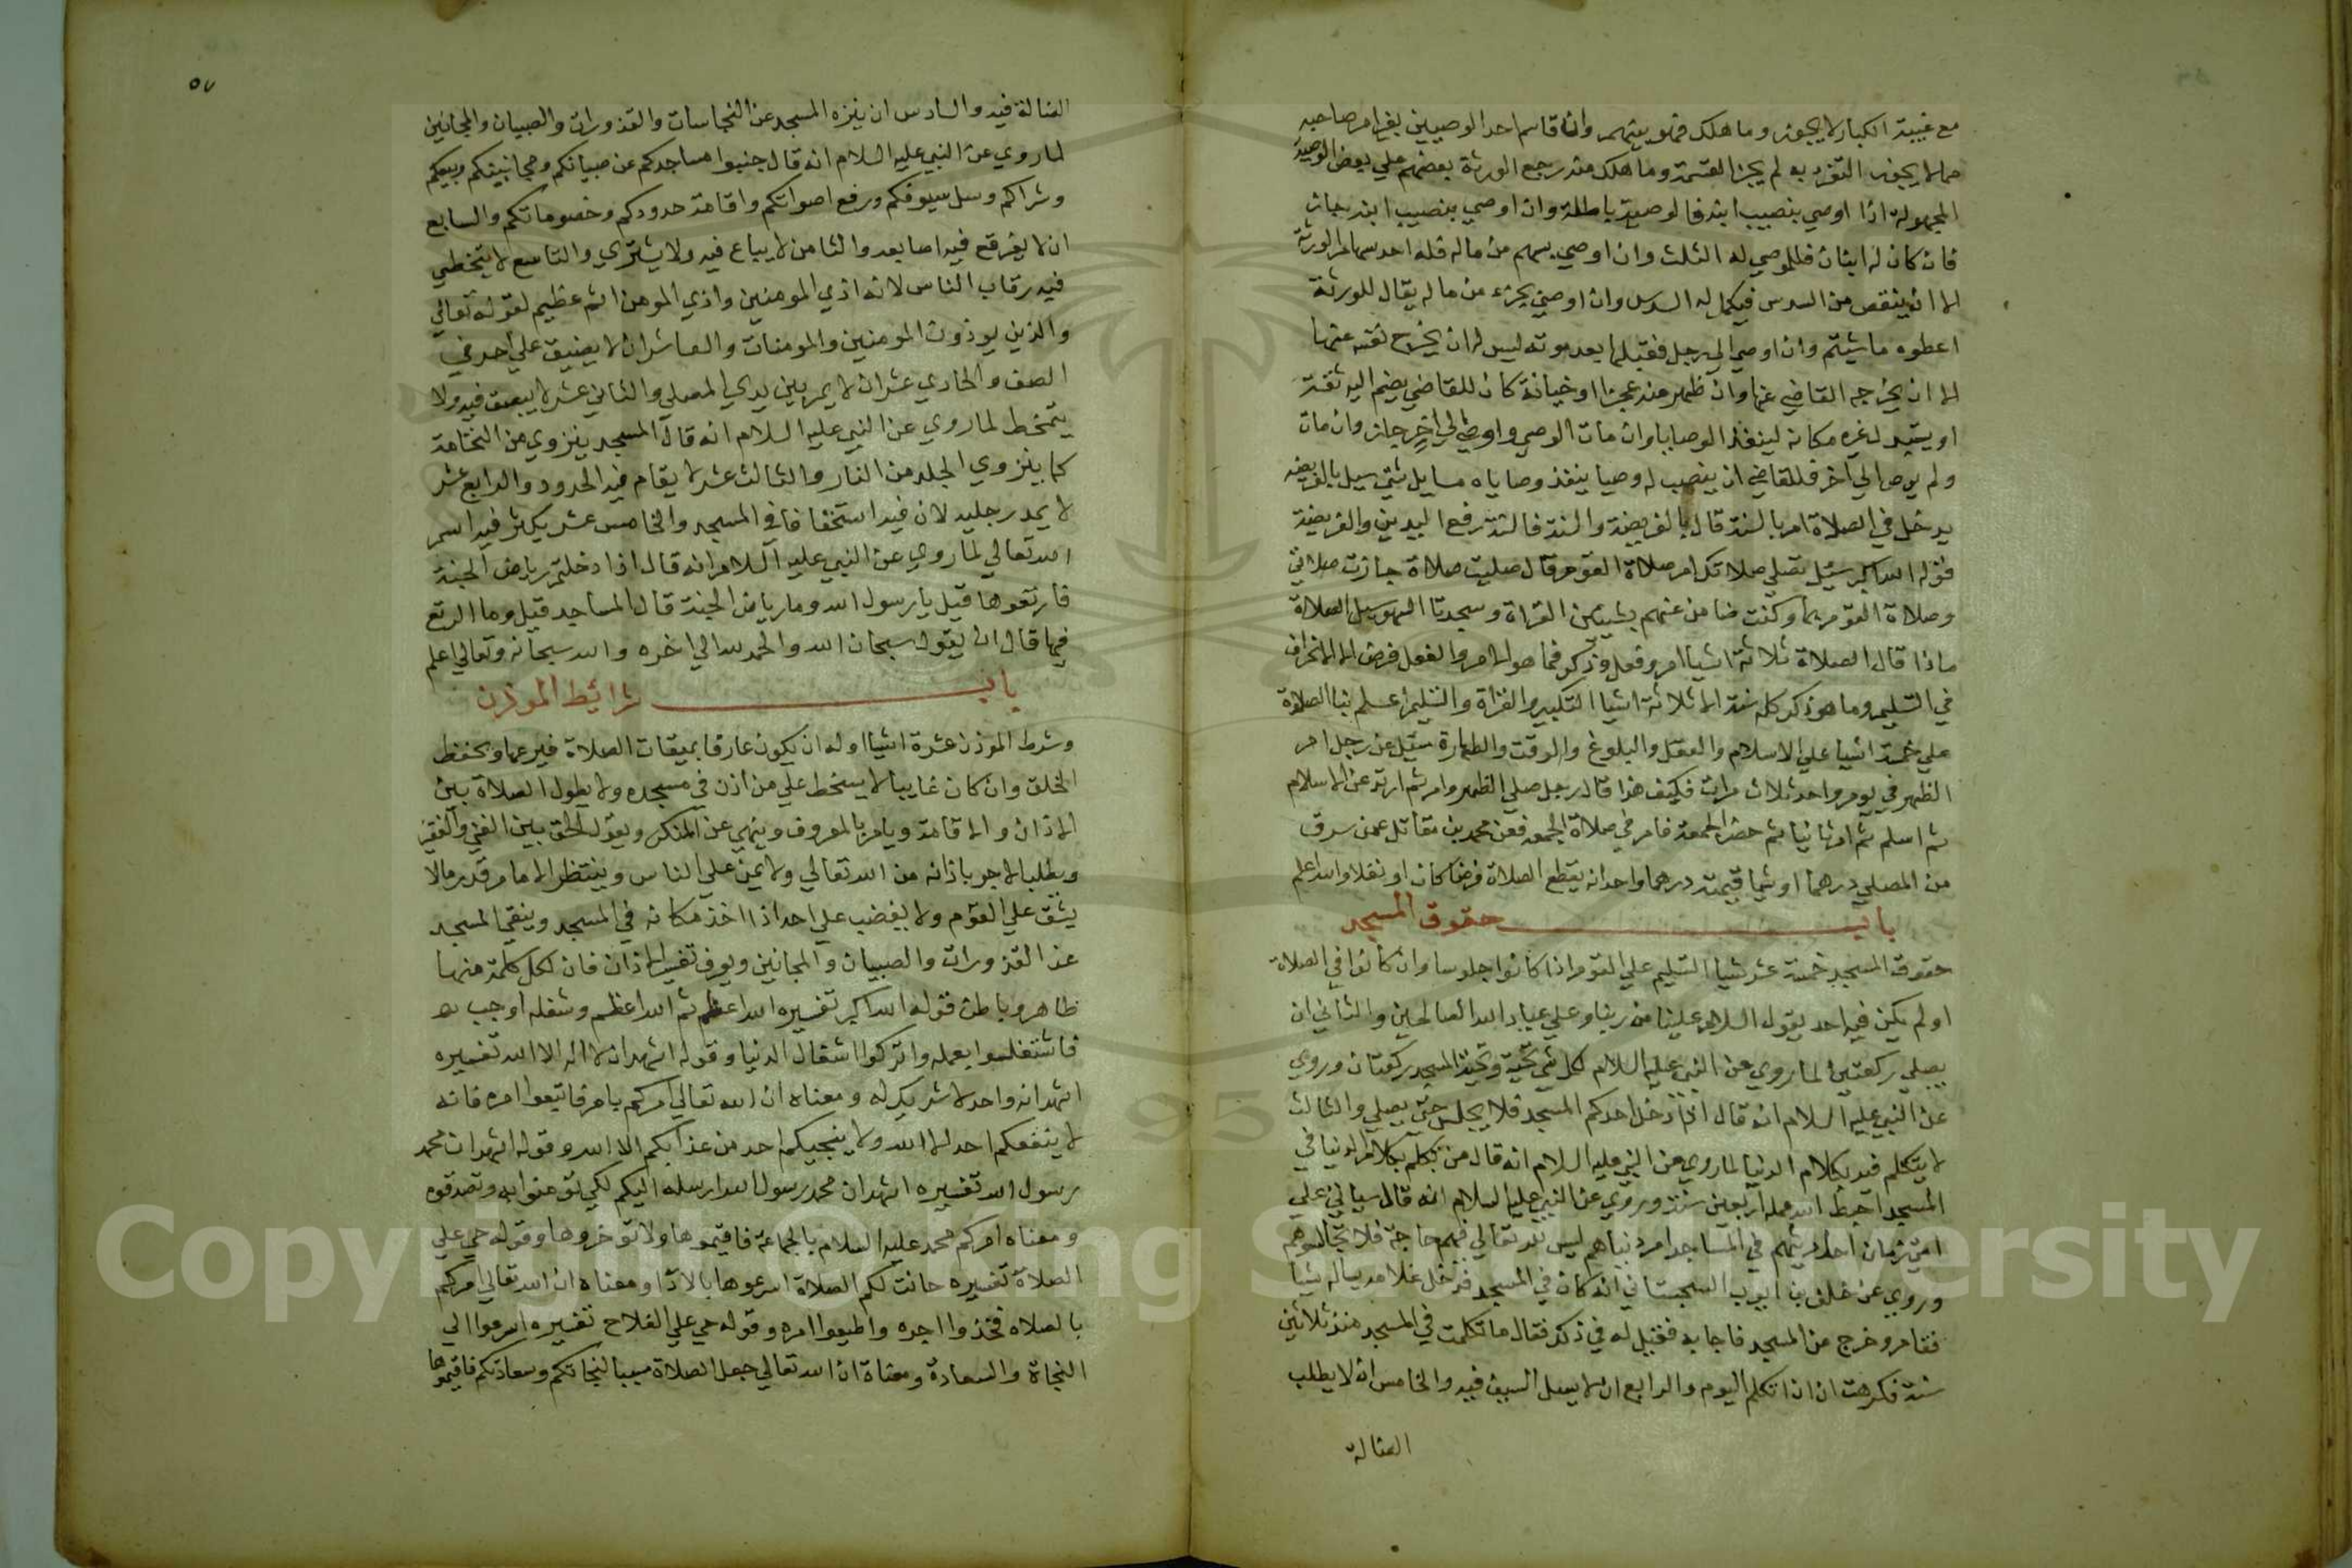 مع غيبة الكبار لا يجوز وما هلك فهو بينهم وان قاسم احد الوصيين بغير امر صاحبه
مما لا يجوز التفرد به لم يجز القسمة وما هلك منه رجع الورثة بعضهم علي بعض الوصية
المجهولة اذا اوصي بنصيب ابنه فالوصية باطلة وان اوصي بنصيب ابنه جاز
فان كان له ابنان فللموصي له الثلث وان اوصي بسهم من ماله فله احد سهام الورثة
الا ان ينقص من السدس فيكمل له السدس وان اوصي بجزء من ماله يقال للورثة
اعطوه ما شيتم وان اوصي الي رجل فقبلها بعد موته ليس له ان يخرج نفسه عنها
الا ان يخرجه القاضي عنها وان ظهر منه عجز او خيانة كان للقاضي يضم اليه ثقة
او يستبدل غيره مكانه لينفذ الوصايا وان مات الوصي واوصي الي اخر جاز وان مات
ولم يوص الي اخر فللقاضي ان ينصب له وصيا ينفذ وصاياه مسايل شتي سيل بالفريضة
يدخل في الصلاة ام بالسنة قال بالفريضة والسنة فالسنة رفع اليدين والفريضة
قوله الله اكبر سئل تصلي صلاتك ام صلاة القوم قال صليت صلاة جازت صلاتي
وصلاة القوم بها وكنت ضامن عنهم بشيئين القراة وسجدتا السهو سيل الصلاة
ماذا قال الصلاة ثلاثة اشيا امر وفعل وذكر فما هو الامر والفعل فرض الا الانحراف
في التسليم وما هو ذكر كله سنة الا ثلاثة اشيا التكبير والقراة والتسليم اعلم بنا الصلاة
علي خمسة اشيا علي الاسلام والعقل والبلوغ والوقت والطهارة سئل عن رجل ام
الظهر في يوم واحد ثلاث مرات فكيف هذا قال رجل صلي الظهر وام ثم ارتد عن الاسلام
ثم اسلم ثم ام ثانيا ثم حضر الجمعة فام في صلاة الجمعه فعن محمد بن مقاتل عمن سرق
من المصلي درهما او شيا قيمته درهما واحد انه يقطع الصلاة فرضا كان او نفلا والله اعلم
باب حقوق المسجد
حقوق المسجد خمسة عشر شيا التسليم علي القوم اذا كانوا جلوسا وان كانوا في الصلاة
او لم يكن فيه احد يقول السلام علينا من ربنا وعلي عباد الله الصالحين والثاني ان
يصلي ركعتين لما روي عن النبي عليه السلام لكل شي تحية وتحية المسجد ركعتان وروي
عن النبي عليه السلام انه قال اذا دخل احدكم المسجد فلا يجلس حتي يصلي والثالث
لا يتكلم فيه بكلام الدنيا لما روي عن النبي عليه السلام انه قال من تكلم بكلام الدنيا في
المسجد احبط الله عمله اربعين سنة وروي عن النبي عليه السلام انه قال سياتي علي
امتي زمان احاديثهم في المساجد امر دنياهم ليس لله تعالي فيهم حاجة فلا تجالسوهم
وروي عن خلف بن ايوب السجستاني انه كان في المسجد فدخل غلامه يساله شيا
فقام وخرج من المسجد فاجابه فقيل له في ذلك فقال ما تكلمت في المسجد منذ ثلاثين
سنة فكرهت ان اتكلم اليوم والرابع ان لا يسل السيف فيه والخامس ان لا يطلب
الضالة
٥٧
الضالة فيه والسادس ان ينزه المسجد عن النجاسات والقذورات والصبيان والمجانين
لما روي عن النبي عليه السلام انه قال جنبوا مساجدكم عن صبيانكم ومجانينكم وبيعكم
وشراكم وسل سيوفكم ورفع اصواتكم واقامة حدودكم وخصوماتكم والسابع
ان لا يفرقع فيه اصابعه والثامن لا يباع فيه ولا يشتري والتاسع لا يتخطي
فيه رقاب الناس لانه اذي المومنين واذي المومن اثم عظيم لقوله تعالي
والذين يوذون المومنين والمومنات والعاشر ان لا يضيق علي احد في
الصف والحادي عشر ان لا يمر بين يدي المصلي والثاني عشر لا يبصق فيه ولا
يتمخط لما روي عن النبي عليه السلام انه قال المسجد ينزوي من النخامة
كما ينزوي الجلد من النار والثالث عشر لا يقام فيه الحدود والرابع عشر
لا يمد رجليه لان فيه استخفافا في المسجد والخامس عشر يكثر فيه اسم
الله تعالي لما روي عن النبي عليه السلام انه قال اذا دخلتم رياض الجنة
فارتعوها قيل يا رسول الله وما رياض الجنة قال المساجد قيل وما الرتع
فيها قال ان يقول سبحان الله والحمد لله الي اخره والله سبحانه وتعالي اعلم
باب شرايط الموذن
وشرط الموذن عشرة اشيا اوله ان يكون عارفا بميقات الصلاة فيرعها ويحفظ
الخلق وان كان غايبا لا يسخط علي من اذن في مسجده ولا يطول الصلاة بين
الاذان والاقامة ويامر بالمعروف وينهي عن المنكر ويقول الحق بين الغني والفقير
ويطلب الاجر باذانه من الله تعالي ولا يمن علي الناس وينتظر الامام قدر ما لا
يشق علي القوم ولا يغضب علي احد اذا اخذ مكانه في المسجد وينقي المسجد
عن القذورات والصبيان والمجانين ويعرف تفسير الاذان فان لكل كلمة منها
ظاهر وباطن فقوله الله اكبر تفسيره الله اعظم ثم الله اعظم وشغله اوجب
فاشتغلوا بعمله واتركوا اشغال الدنيا وقوله اشهد ان لا اله الا الله تفسيره
اشهد انه واحد لا شريك له ومعناه ان الله تعالي امركم بامر فاتبعوا امره فانه
لا ينفعكم احد الا الله ولا ينجيكم احد من عذابكم الا الله وقوله اشهد ان محمد
رسول الله تفسيره اشهد ان محمد رسول الله ارسله اليكم لكي تومنوا به وتصدقوه
ومعناه امركم محمد عليه السلام بالجماعة فاقيموها ولا توخروها وقوله حي علي
الصلاة تفسيره حانت لكم الصلاة اسرعوها بالادا ومعناه ان الله تعالي امركم
بالصلاه فخذوا اجره واطيعوا امره وقوله حي علي الفلاح تفسيره اسرعوا الي
النجاة والسعادة ومعناه ان الله تعالي جعل الصلاة سببا لنجاتكم وسعادتكم فاقيموها
Copyright © King Saud University